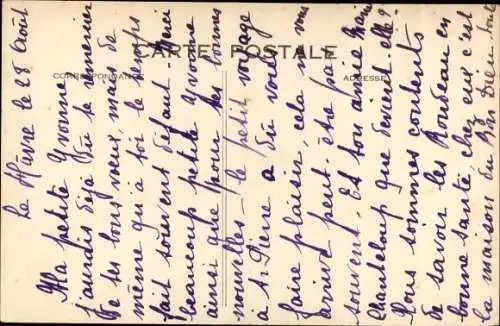 CARTE POSTALE
CORRESPONDANCE
ADRESSE
Le Hâvre le 28 Août
Ma petite Yvonne
J'aurais déjà dû te remercier
de tes bons voeux, mais de
même qu'à toi le temps
fait souvent défaut. Merci
beaucoup petite Yvonne
ainsi que pour tes bonnes
nouvelles – le petit voyage
à St Pierre a dû vous
faire plaisir, cela ne vous
arrive peut-être pas
souvent. Et ton amie
Chanteloup que devient-elle?
Nous sommes contents
de savoir les Rondeau en
bonne santé, chez eux c'est
la maison du Bon Dieu